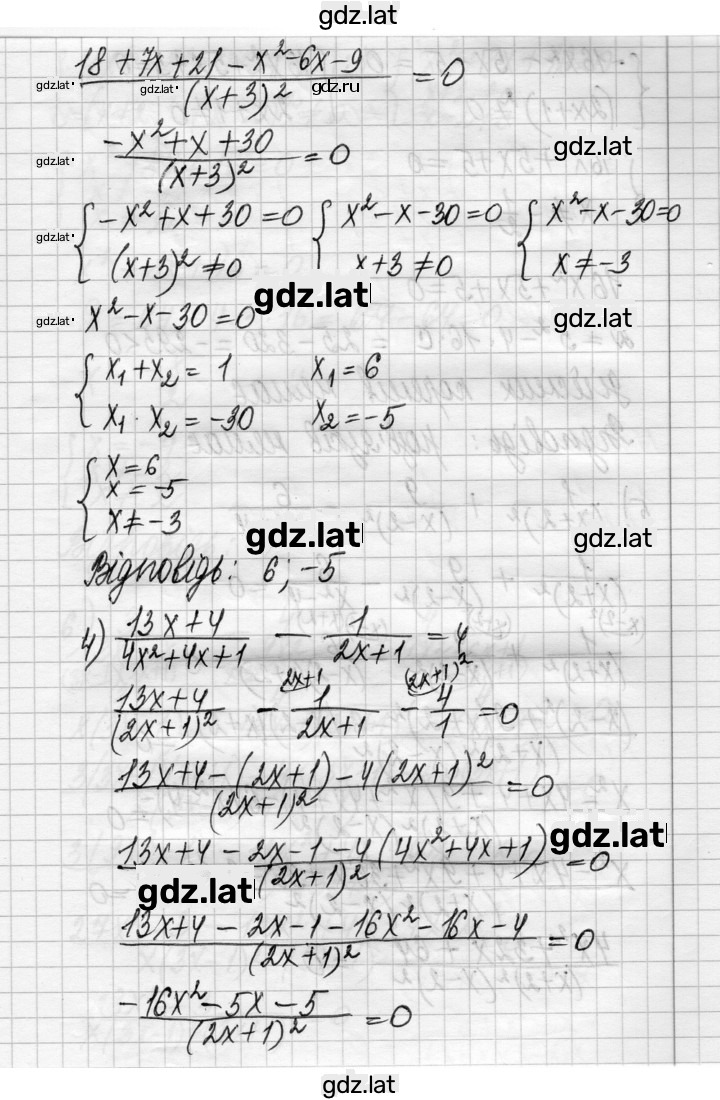 gdz.lat
18 + 7x + 21 - x² - 6x - 9 / (x+3)² = 0
gdz.lat gdz.lat gdz.ru
-x² + x + 30 / (x+3)² = 0
gdz.lat gdz.lat
{ -x² + x + 30 = 0 { x² - x - 30 = 0 { x² - x - 30 = 0
gdz.lat
(x+3)² ≠ 0 x + 3 ≠ 0 x ≠ -3
gdz.lat
gdz.lat x² - x - 30 = 0 gdz.lat
{ x₁ + x₂ = 1 x₁ = 6
x₁ · x₂ = -30 x₂ = -5
{ x = 6
x = -5
x ≠ -3
gdz.lat gdz.lat
Відповідь: 6; -5
4) 13x + 4 / 4x² + 4x + 1 - 1 / 2x + 1 = 4
2x+1 (2x+1)²
13x + 4 / (2x+1)² - 1 / 2x+1 - 4 / 1 = 0
13x + 4 - (2x+1) - 4(2x+1)² / (2x+1)² = 0
gdz.lat
13x + 4 - 2x - 1 - 4(4x² + 4x + 1) / (2x+1)² = 0
gdz.lat
13x + 4 - 2x - 1 - 16x² - 16x - 4 / (2x+1)² = 0
-16x² - 5x - 5 / (2x+1)² = 0
gdz.lat